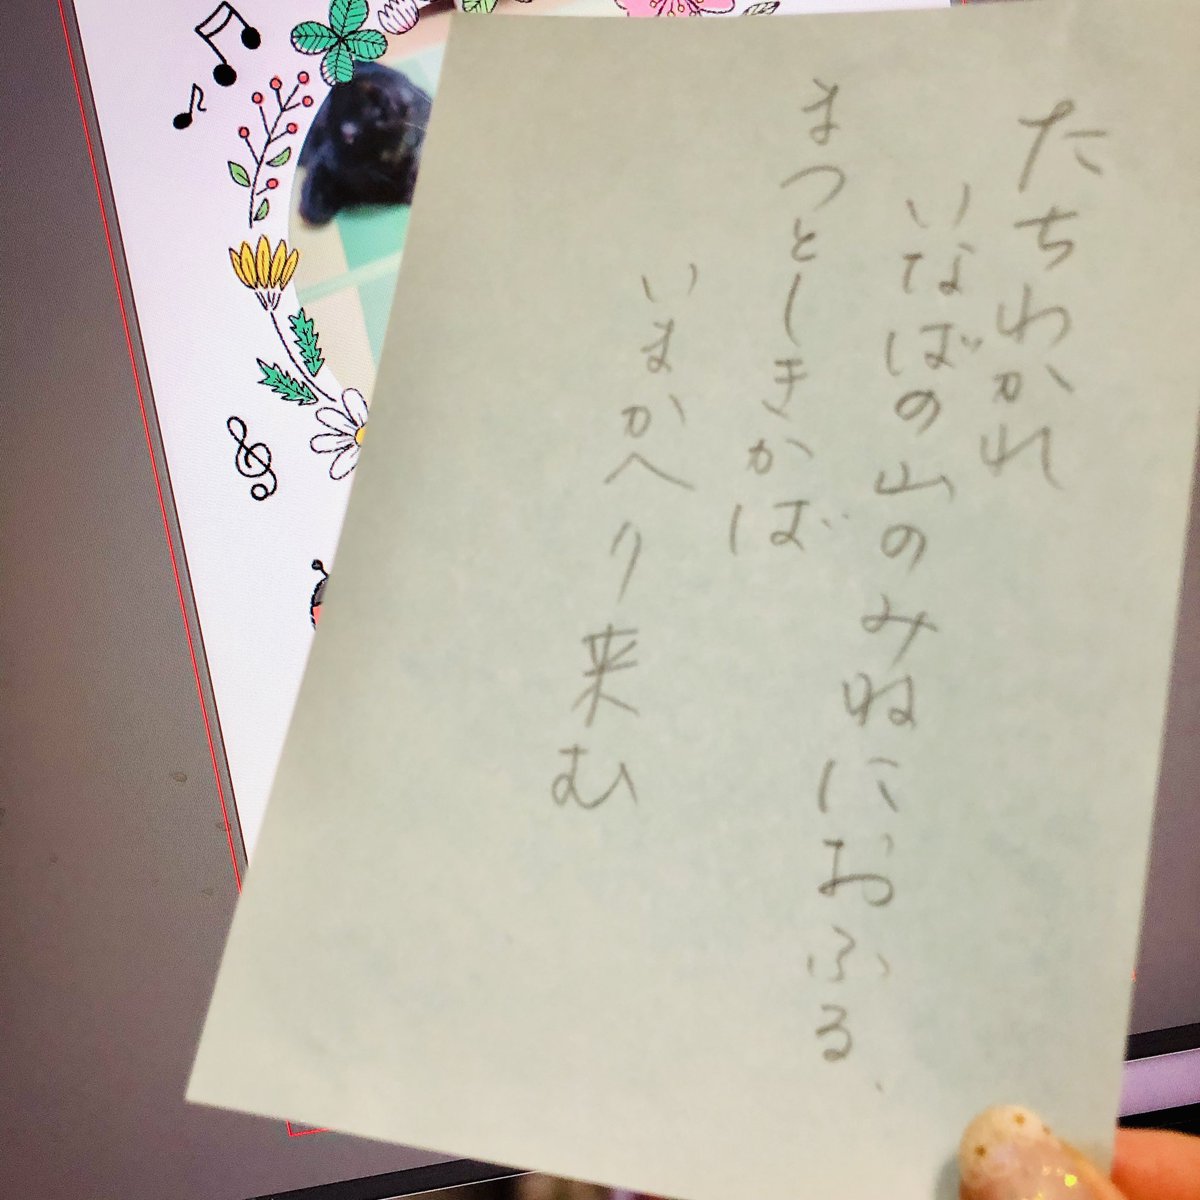 たちわかれ
いなばの山のみねにおふる、
まつとしきかば
いまかへり来む